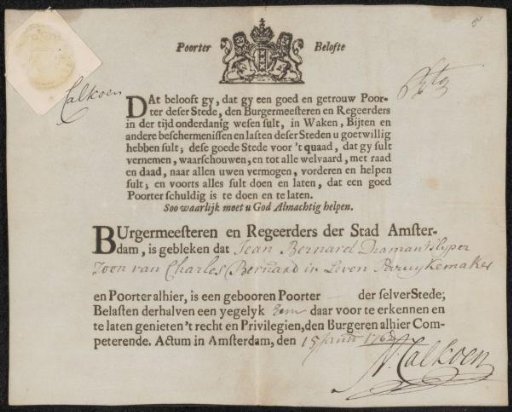 Poorter Belofte
Calkoen
DAt belooft gy, dat gy een goed en getrouw Poor-
ter deser Stede, den Burgermeesteren en Regeerders
in der tijd onderdanig wesen sult, in Waken, Bijten en
andere beschermenissen en lasten deser Steden u goetwillig
hebben sult; dese goede Stede voor 't quaad, dat gy sult
vernemen, waarschouwen, en tot alle welvaard, met raad
en daad, naar allen uwen vermogen, vorderen en helpen
sult; en voorts alles sult doen en laten, dat een goed
Poorter schuldig is te doen en te laten.
Soo waarlijk moet u God Almachtig helpen.
BUrgermeesteren en Regeerders der Stad Amster-
dam, is gebleken dat Jean Bernard Diamantslyper
Zoon van Charles Bernard in Leven Paruykemaker
en Poorter alhier, is een geboren Poorter der selver Stede;
Belasten derhalven een yegelyk hem daar voor te erkennen en
te laten genieten 't recht en Privilegien, den Burgeren alhier Com-
peterende. Actum in Amsterdam, den 15
Calkoen